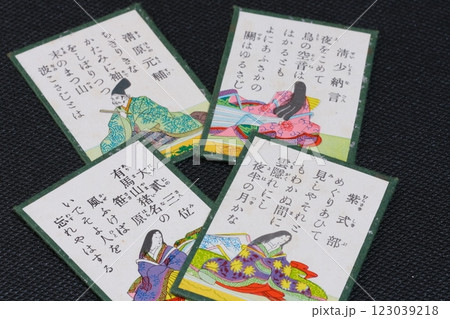 清原元輔
ちぎりきな
かたみに袖
をしぼりつつ
末のまつ山
波こさじとは
清少納言
夜をこめて
鳥の空音は
はかるとも
よにあふさかの
關はゆるさじ
大貳三位
有馬山猪名の
笹原
風ふけば
いでそよ人を
忘れやはする
紫式部
めぐりあひて
見しやそれと
もわかぬ間に
雲隱れにし
夜半の月かな
PIXTA
123039218